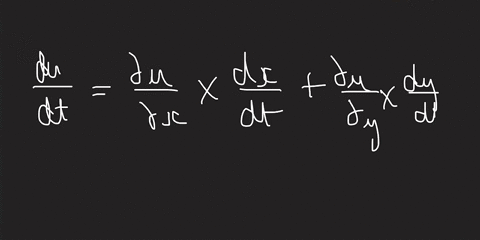 du/dt = ∂u/∂x × dx/dt + ∂u/∂y × dy/d